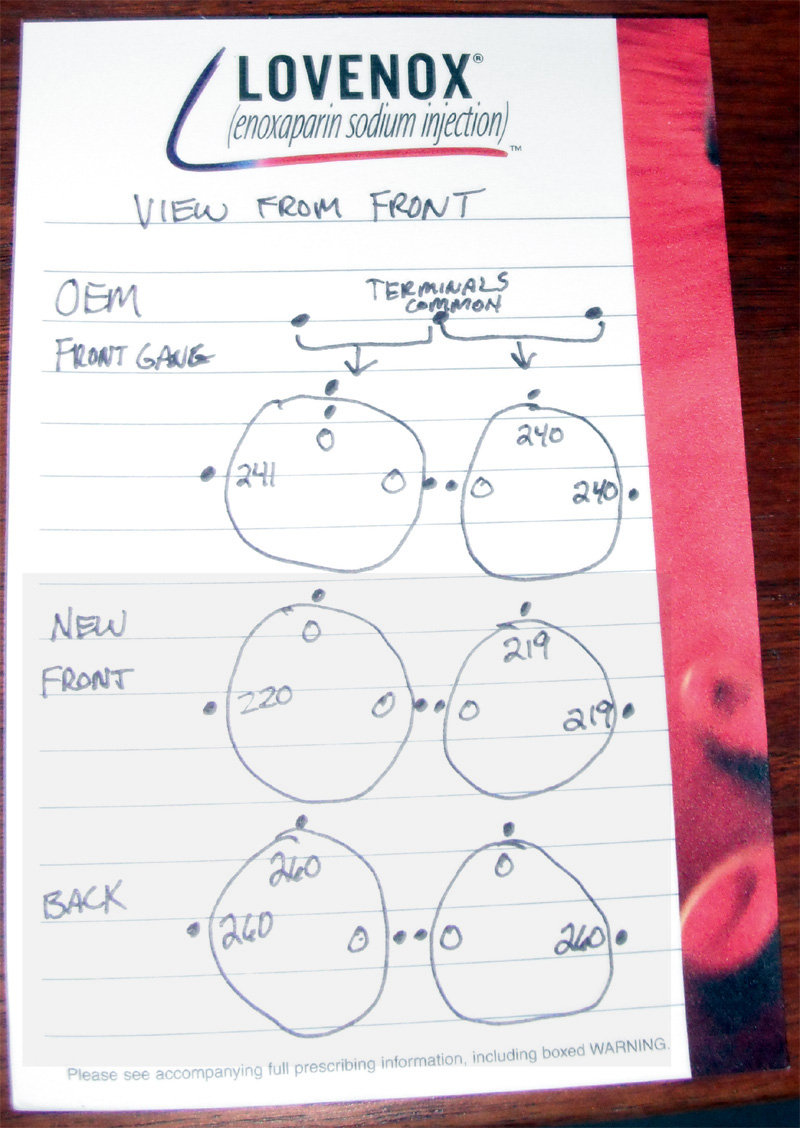 LOVENOX®
(enoxaparin sodium injection)™
VIEW FROM FRONT
OEM
TERMINALS
COMMON
FRONT GANG
0 240
241 0 0 240
NEW
0 219
FRONT
220 0 0 219
260 0
BACK
260 0 0 260
Please see accompanying full prescribing information, including boxed WARNING.